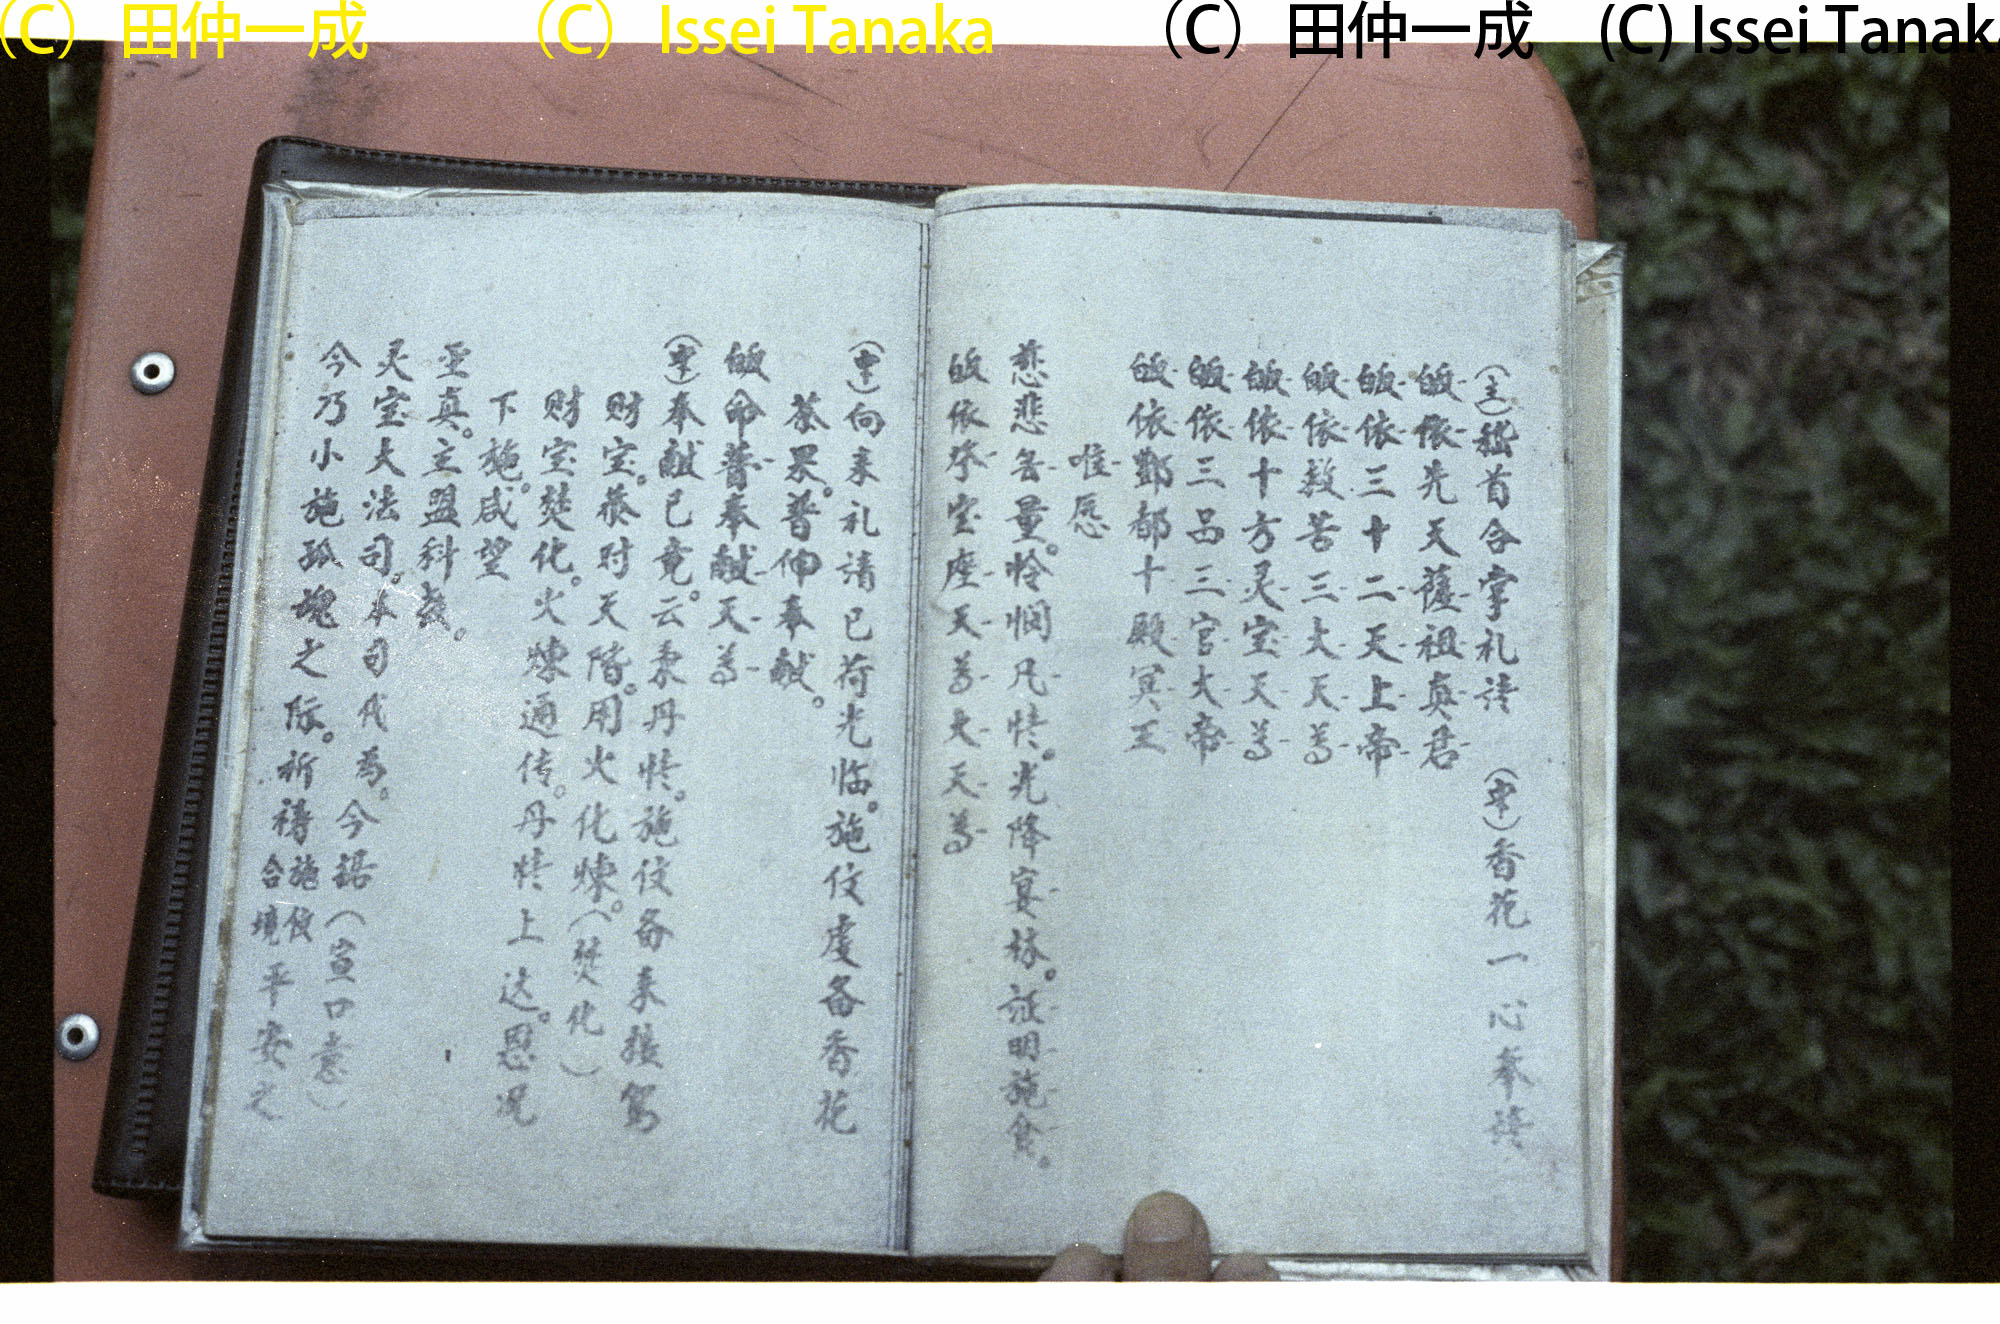 (C) 田仲一成 (C) Issei Tanaka (C) 田仲一成 (C) Issei Tanaka
(主)嵇首合掌礼请 (中)香花一心奉请
皈依先天薩祖真君
皈依三十二天上帝
皈依救苦三大天尊
皈依十方灵宝天尊
皈依三品三官大帝
皈依酆都十殿冥王
唯愿
慈悲无量。怜悯凡情。光降宴林。証明施食。
皈依登宝座天尊大天尊
(中)向来礼请已荷光临。施仗虔备香花
茶果。普伸奉献。
皈命普奉献天尊
(中)奉献已竟。云秉丹情。施仗备来接驾
财宝。恭对天階。用火化煉。(焚化)
财宝焚化。火煉通传。丹情上达。恩况
下施。咸望
圣真。主盟科教。
灵宝大法司。本司代为。今据(宣口意)
今乃小施孤魂之际。祈禱施仗合境平安之